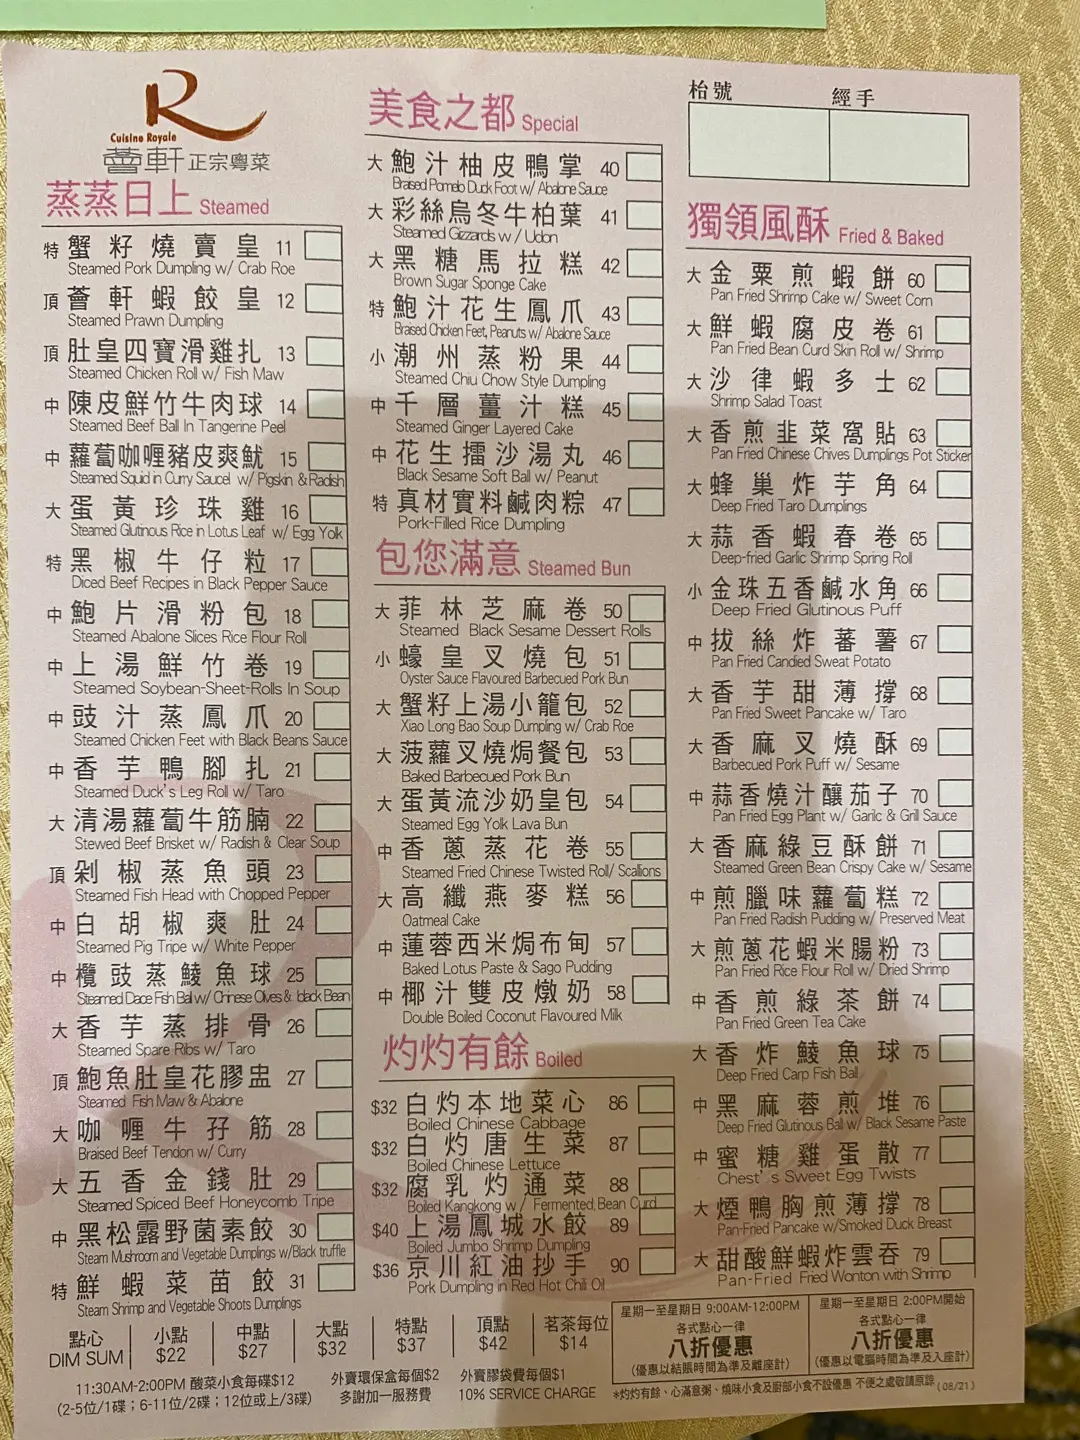 R
Cuisine Royale
薈軒 正宗粵菜
蒸蒸日上 Steamed
特 蟹籽燒賣皇 11
Steamed Pork Dumpling w/ Crab Roe
頂 薈軒蝦餃皇 12
Steamed Prawn Dumpling
頂 肚皇四寶滑雞扎 13
Steamed Chicken Roll w/ Fish Maw
中 陳皮鮮竹牛肉球 14
Steamed Beef Ball In Tangerine Peel
中 蘿蔔咖喱豬皮爽魷 15
Steamed Squid in Curry Saucel w/ Pigskin & Radish
大 蛋黃珍珠雞 16
Steamed Glutinous Rice in Lotus Leaf w/ Egg Yolk
特 黑椒牛仔粒 17
Diced Beef Recipes in Black Pepper Sauce
中 鮑片滑粉包 18
Steamed Abalone Slices Rice Flour Roll
中 上湯鮮竹卷 19
Steamed Soybean-Sheet-Rolls In Soup
中 豉汁蒸鳳爪 20
Steamed Chicken Feet with Black Beans Sauce
中 香芋鴨腳扎 21
Steamed Duck's Leg Roll w/ Taro
大 清湯蘿蔔牛筋腩 22
Stewed Beef Brisket w/ Radish & Clear Soup
頂 剁椒蒸魚頭 23
Steamed Fish Head with Chopped Pepper
中 白胡椒爽肚 24
Steamed Pig Tripe w/ White Pepper
中 欖豉蒸鯪魚球 25
Steamed Dace Fish Ball w/ Chinese Olives & black Bean
大 香芋蒸排骨 26
Steamed Spare Ribs w/ Taro
頂 鮑魚肚皇花膠盅 27
Steamed Fish Maw & Abalone
大 咖喱牛孖筋 28
Braised Beef Tendon w/ Curry
大 五香金錢肚 29
Steamed Spiced Beef Honeycomb Tripe
中 黑松露野菌素餃 30
Steam Mushroom and Vegetable Dumplings w/Black truffle
特 鮮蝦菜苗餃 31
Steam Shrimp and Vegetable Shoots Dumplings
美食之都 Special
大 鮑汁柚皮鴨掌 40
Braised Pomelo Duck Foot w/ Abalone Sauce
大 彩絲烏冬牛柏葉 41
Steamed Gizzards w / Udon
大 黑糖馬拉糕 42
Brown Sugar Sponge Cake
特 鮑汁花生鳳爪 43
Braised Chicken Feet, Peanuts w/ Abalone Sauce
小 潮州蒸粉果 44
Steamed Chiu Chow Style Dumpling
中 千層薑汁糕 45
Steamed Ginger Layered Cake
中 花生擂沙湯丸 46
Black Sesame Soft Ball w/ Peanut
特 真材實料鹹肉粽 47
Pork-Filled Rice Dumpling
包您滿意 Steamed Bun
大 菲林芝麻卷 50
Steamed Black Sesame Dessert Rolls
小 蠔皇叉燒包 51
Oyster Sauce Flavoured Barbecued Pork Bun
大 蟹籽上湯小籠包 52
Xiao Long Bao Soup Dumpling w/ Crab Roe
大 菠蘿叉燒焗餐包 53
Baked Barbecued Pork Bun
大 蛋黃流沙奶皇包 54
Steamed Egg Yolk Lava Bun
中 香蔥蒸花卷 55
Steamed Fried Chinese Twisted Roll/ Scallions
大 高纖燕麥糕 56
Oatmeal Cake
中 蓮蓉西米焗布甸 57
Baked Lotus Paste & Sago Pudding
中 椰汁雙皮燉奶 58
Double Boiled Coconut Flavoured Milk
灼灼有餘 Boiled
$32 白灼本地菜心 86
Boiled Chinese Cabbage
$32 白灼唐生菜 87
Boiled Chinese Lettuce
$32 腐乳灼通菜 88
Boiled Kangkong w / Fermented Bean Curd
$40 上湯鳳城水餃 89
Boiled Jumbo Shrimp Dumpling
$36 京川紅油抄手 90
Pork Dumpling in Red Hot Chili Oil
枱號 經手
獨領風酥 Fried & Baked
大 金粟煎蝦餅 60
Pan Fried Shrimp Cake w/ Sweet Corn
大 鮮蝦腐皮卷 61
Pan Fried Bean Curd Skin Roll w/ Shrimp
大 沙律蝦多士 62
Shrimp Salad Toast
大 香煎韭菜窩貼 63
Pan Fried Chinese Chives Dumplings Pot Sticker
大 蜂巢炸芋角 64
Deep Fried Taro Dumplings
大 蒜香蝦春卷 65
Deep-fried Garlic Shrimp Spring Roll
小 金珠五香鹹水角 66
Deep Fried Glutinous Puff
中 拔絲炸蕃薯 67
Pan Fried Candied Sweat Potato
大 香芋甜薄撐 68
Pan Fried Sweet Pancake w/ Taro
大 香麻叉燒酥 69
Barbecued Pork Puff w/ Sesame
中 蒜香燒汁釀茄子 70
Pan Fried Egg Plant w/ Garlic & Grill Sauce
大 香麻綠豆酥餅 71
Steamed Green Bean Crispy Cake w/ Sesame
中 煎臘味蘿蔔糕 72
Pan Fried Radish Pudding w/ Preserved Meat
大 煎蔥花蝦米腸粉 73
Pan Fried Rice Flour Roll w/ Dried Shrimp
中 香煎綠茶餅 74
Pan Fried Green Tea Cake
大 香炸鯪魚球 75
Deep Fried Carp Fish Ball
中 黑麻蓉煎堆 76
Deep Fried Glutinous Ball w/ Black Sesame Paste
中 蜜糖雞蛋散 77
Chest's Sweet Egg Twists
大 煙鴨胸煎薄撐 78
Pan-Fried Pancake w/Smoked Duck Breast
大 甜酸鮮蝦炸雲吞 79
Pan-Fried Fried Wonton with Shrimp
點心 小點 中點 大點 特點 頂點 茗茶每位
DIM SUM $22 $27 $32 $37 $42 $14
11:30AM-2:00PM 酸菜小食每碟$12
(2-5位/1碟；6-11位/2碟；12位或上/3碟)
外賣環保盒每個$2 外賣膠袋費每個$1
多謝加一服務費 10% SERVICE CHARGE
星期一至星期日 9:00AM-12:00PM
各式點心一律
八折優惠
(優惠以結賬時間為準及離座計)
星期一至星期日 2:00PM開始
各式點心一律
八折優惠
(優惠以電腦時間為準及入座計)
*灼灼有餘、心滿意粥、燒味小食及廚部小食不設優惠 不便之處敬請原諒 (08/21)